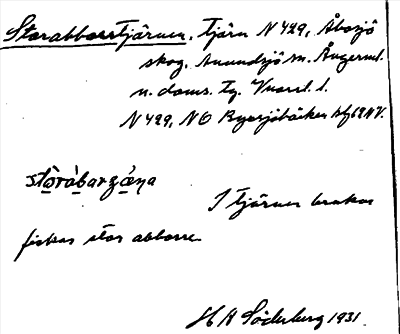 Storabborrtjärnen, tjärn N 429, Åbosjö
skog, Anundsjö sn. Ångerml.
n. doms. tg.
N 429, NO Byarsjöbäcken
I tjärnen brukar
fiskas stor abborre
H A Söderberg 1931